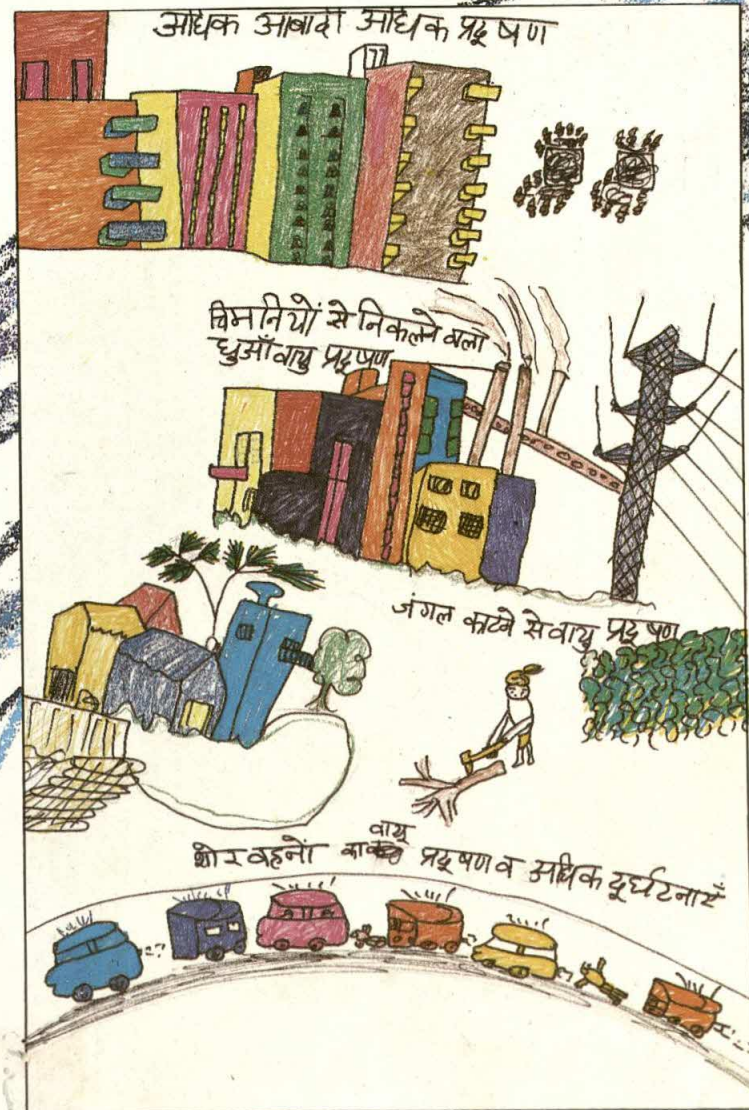 अधिक आबादी अधिक प्रदूषण
चिमनियों से निकलने वाला
धुआँ वायु प्रदूषण
जंगल काटने से वायु प्रदूषण
वायु
शोर वहनों का प्रदूषण व अधिक दुर्घटनाएँ